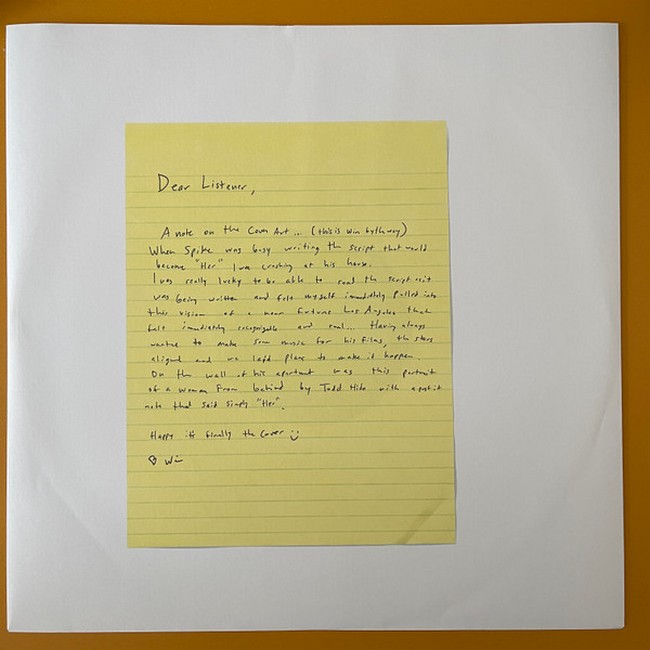 Dear Listener,
A note on the Cover Art... (this is Win by the way)
When Spike was busy writing the script that would
become "Her" I was crashing at his house.
I was really lucky to be able to read the script as it
was being written and felt myself immediately pulled into
this vision of a near future Los Angeles that
felt immediately recognizable and real... Having always
wanted to make some music for his films, the stars
aligned and we laid plans to make it happen.
On the wall of his apartment was this portrait
of a woman from behind by Todd Hido with a post it
note that said simply "Her".
Happy it's finally the cover :)
♡ Win